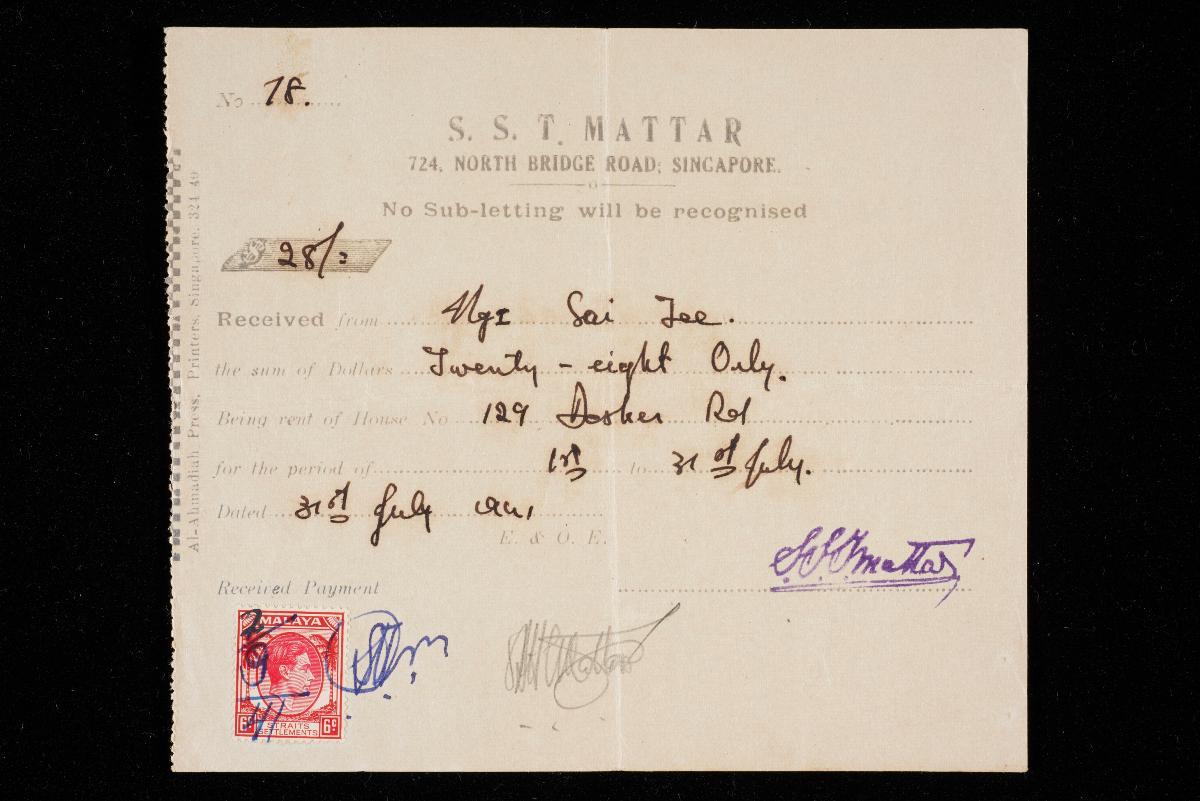 No 78.
S. S. T. MATTAR
724, NORTH BRIDGE ROAD; SINGAPORE.
No Sub-letting will be recognised
28/=
Received from Ngi Sai Jee.
the sum of Dollars Twenty - eight Only.
Being rent of House No 129 Desker Rd
for the period of 1st to 31st July.
Dated 31st July
E. & O. E.
S.S.T. Mattar
Received Payment
MALAYA
6c STRAITS SETTLEMENTS 6c
Al-Ahmadiah Press, Printers, Singapore. 324 40